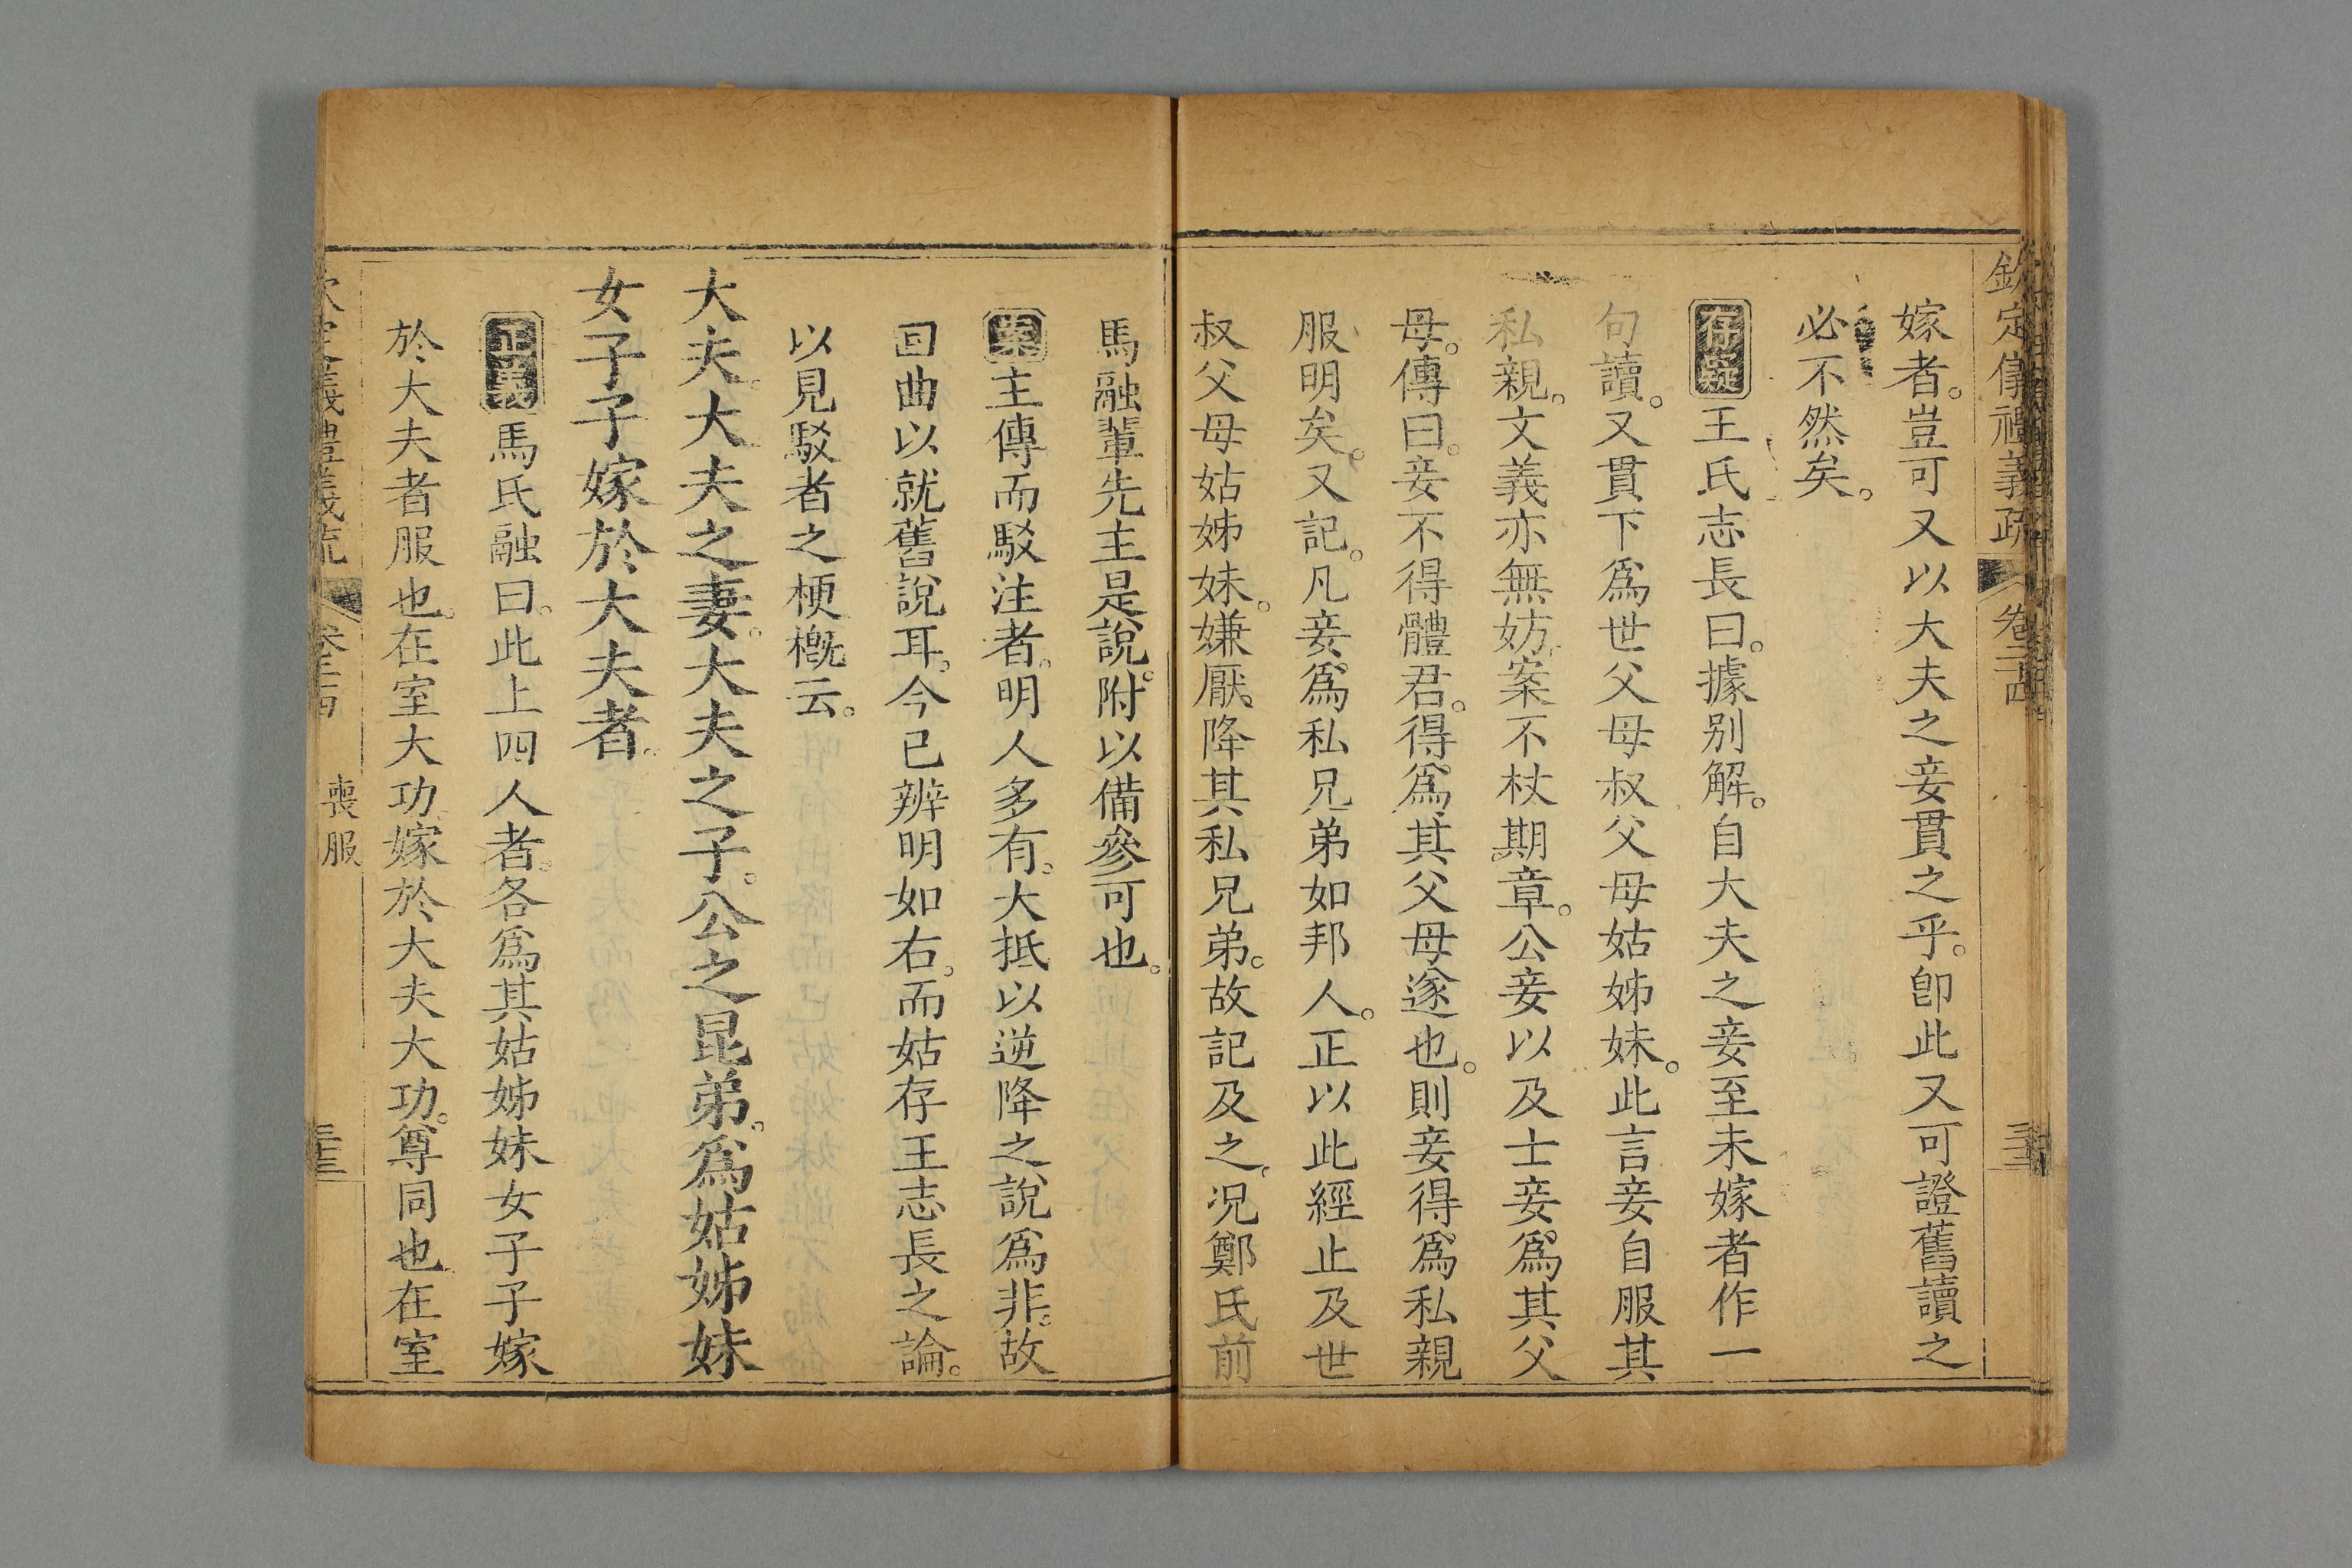 欽定儀禮義疏 卷二十四
嫁者。豈可又以大夫之妾貫之乎。卽此又可證舊讀之
必不然矣。
存疑王氏志長曰。據別解。自大夫之妾至未嫁者作一
句讀。又貫下爲世父母叔父母姑姊妹。此言妾自服其
私親。文義亦無妨。案不杖期章。公妾以及士妾。爲其父
母。傳曰。妾不得體君。得爲其父母遂也。則妾得爲私親
服明矣。又記。凡妾爲私兄弟如邦人。正以此經止及世
叔父母姑姊妹。嫌厭降其私兄弟。故記及之。况鄭氏前
馬融輩先主是說。附以備參可也。
案主傳而駁注者。明人多有。大抵以逆降之說爲非。故
回曲以就舊說耳。今已辨明如右。而姑存王志長之論。
以見駁者之梗槪云。
大夫。大夫之妻。大夫之子。公之昆弟。爲姑姊妹
女子子嫁於大夫者。
正義馬氏融曰。此上四人者。各爲其姑姊妹女子子嫁
於大夫者服也。在室大功。嫁於大夫大功。尊同也。在室
義禮義疏 喪服